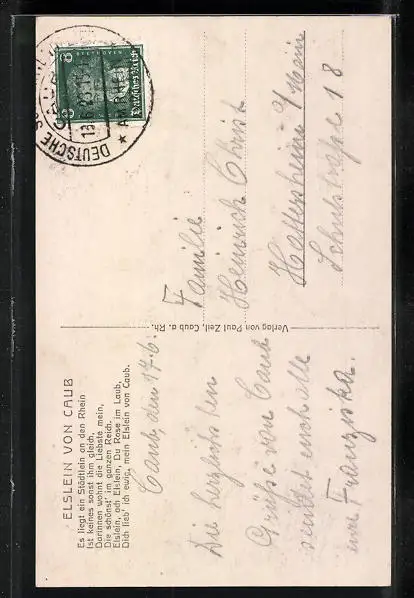 ELSLEIN VON CAUB
Es liegt ein Städtlein an den Rhein
Ist keines sonst ihm gleich,
Darinnen wohnt die Liebste mein,
Die schönst' im ganzen Reich.
Elslein, ach Elslein, Du Rose im Laub,
Dich lieb' ich ewig, mein Elslein von Caub.
Caub, den 17.6.
Die herzlichsten
Grüße von Caub
sendet euch alle
eure Franziska.
Verlag von Paul Zell, Caub a. Rh.
BEETHOVEN
8 8
Deutsches Reich
DEUTSCHE
CAUB
Familie
Heinrich Christ
Hattersheim a/Main
Schulstraße 18